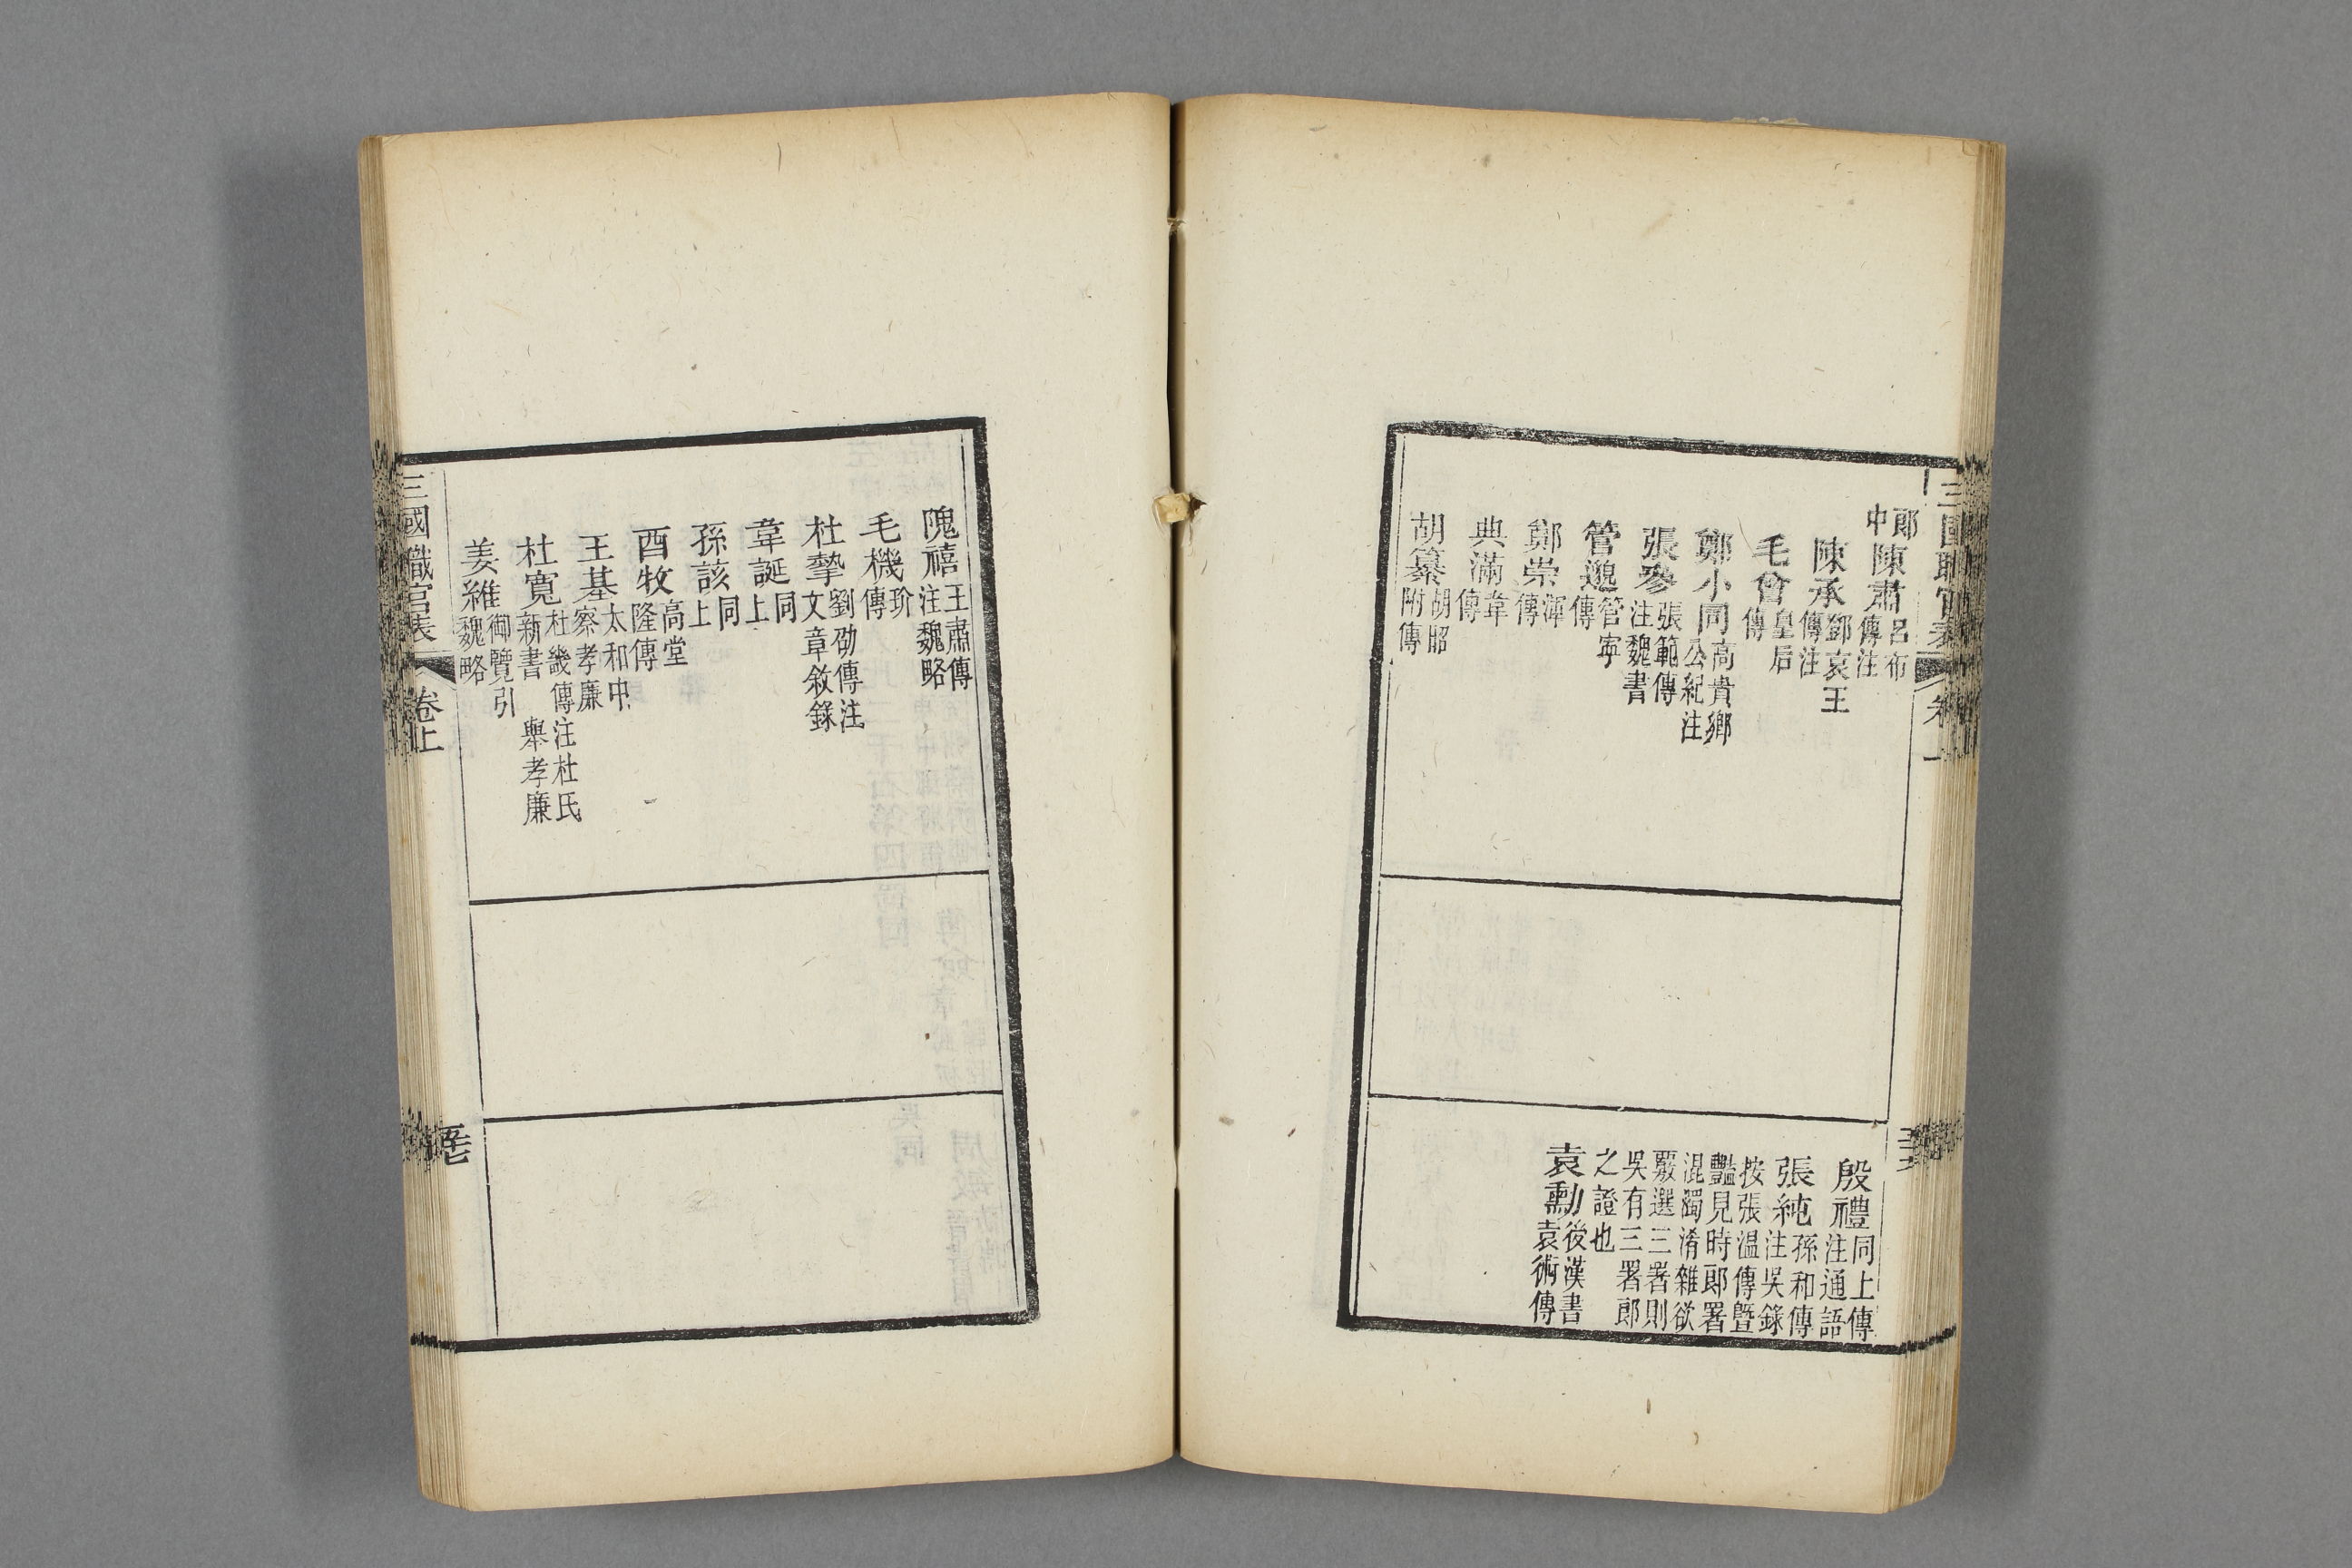 三國職官表 卷上
郎中
陳肅呂布傳注
陳承鄧哀王傳注
毛曾皇后傳
鄭小同高貴鄉公紀注
張參張範傳注魏書
管邈管寧傳
鄭崇渾傳
典滿韋傳
胡纂胡昭附傳
殷禮同上傳注通語
張純孫和傳注吳錄
按張温傳曁
豔見時郎署
混濁淆雜欲
覈選三署則
吳有三署郎
之證也
袁勳後漢書袁術傳
隗禧王肅傳注魏略
毛機玠傳
杜摯劉劭傳注文章敘錄
韋誕同上
孫該同上
酉牧高堂隆傳
王基太和中察孝廉
杜寬杜畿傳注杜氏新書 舉孝廉
姜維御覽引魏略
三國職官表 卷上 五七